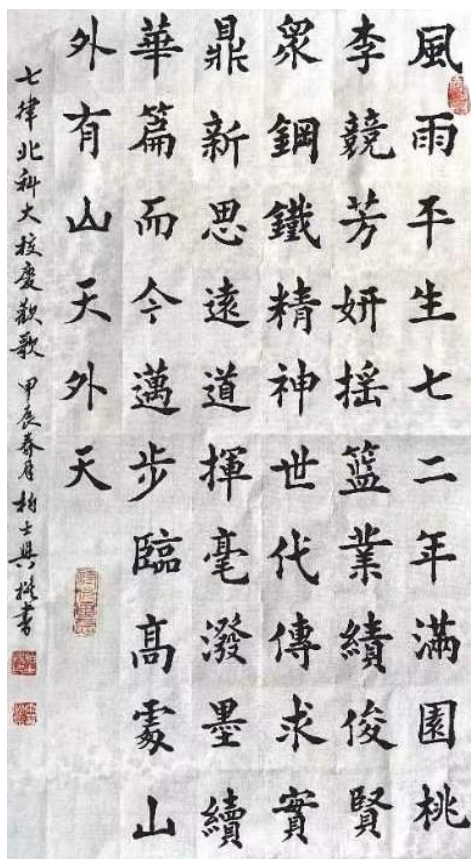 風雨平生七二年滿園桃
李競芳妍揺籃業績俊賢
衆鋼鐵精神世代傳求實
鼎新思遠道揮毫潑墨續
華篇而今邁步臨高處山
外有山天外天
七律北科大校慶歡歌 甲辰春月柏士興撰書